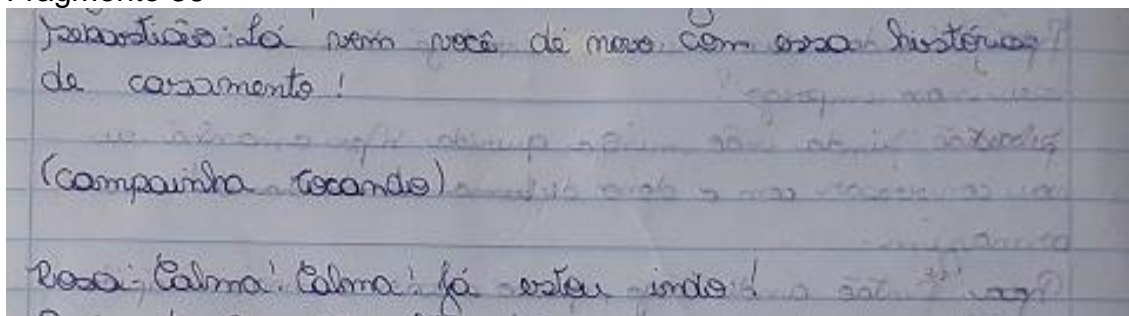 Sebastião: Lá vem você de novo com essa história
de casamento!
(campainha tocando)
Rosa: Calma! Calma! Já estou indo!